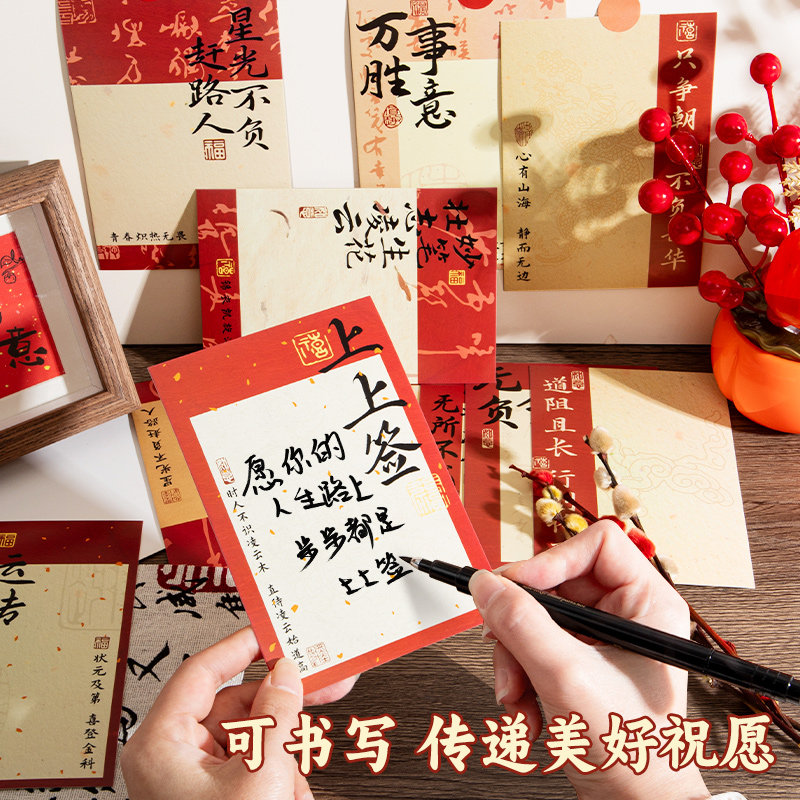 星光不负
赶路人
福
青春炽热无畏
万事
胜意
只争朝
不负
华
心有山海 静而无边
妙笔生花
壮志凌云
意
上上签
愿你的
人生路上
步步都是
上上签
时人不识凌云木 直待凌云始道高
星光不负赶路人
无所不
无负
道阻且长 行
福
状元及第 喜登金科
可书写 传递美好祝愿